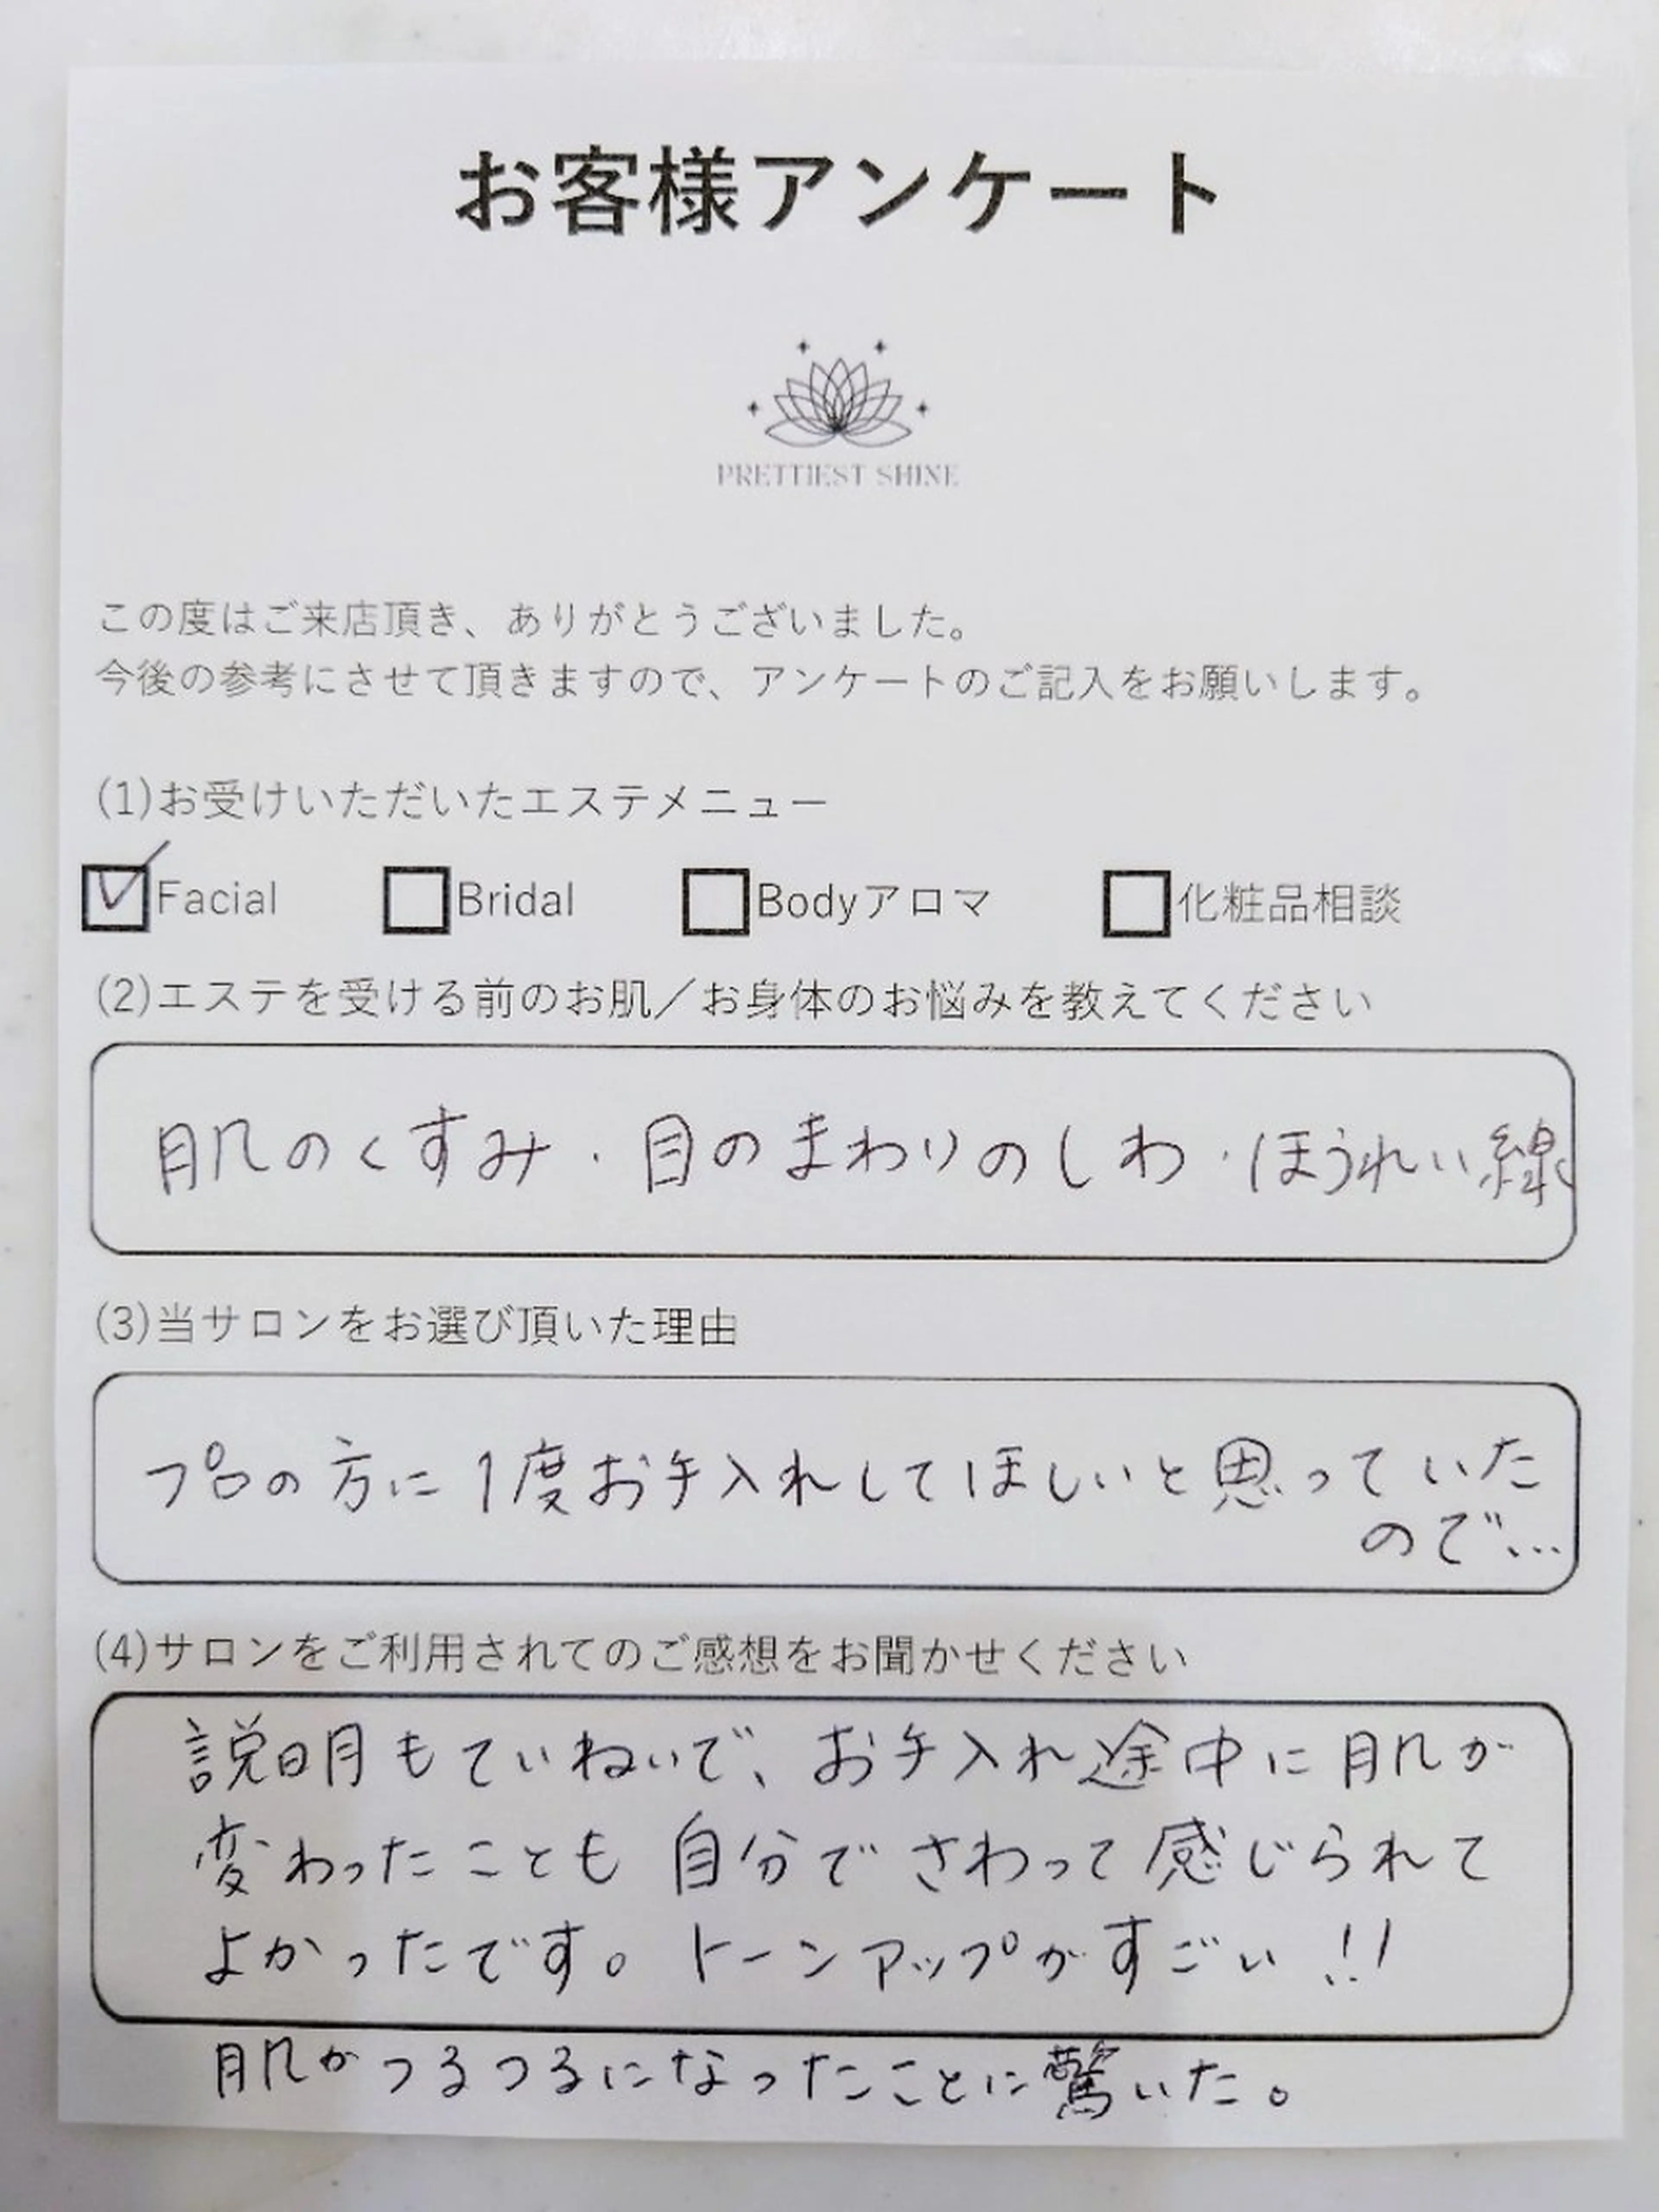 お客様アンケート
PRETTIEST SHINE
この度はご来店頂き、ありがとうございました。
今後の参考にさせて頂きますので、アンケートのご記入をお願いします。
(1)お受けいただいたエステメニュー
☑Facial □Bridal □Bodyアロマ □化粧品相談
(2)エステを受ける前のお肌／お身体のお悩みを教えてください
肌のくすみ・目のまわりのしわ・ほうれい線
(3)当サロンをお選び頂いた理由
プロの方に1度お手入れしてほしいと思っていた
ので…
(4)サロンをご利用されてのご感想をお聞かせください
説明もていねいで、お手入れ途中に肌が
変わったことも自分でさわって感じられて
よかったです。トーンアップがすごい!!
肌がつるつるになったことに驚いた。